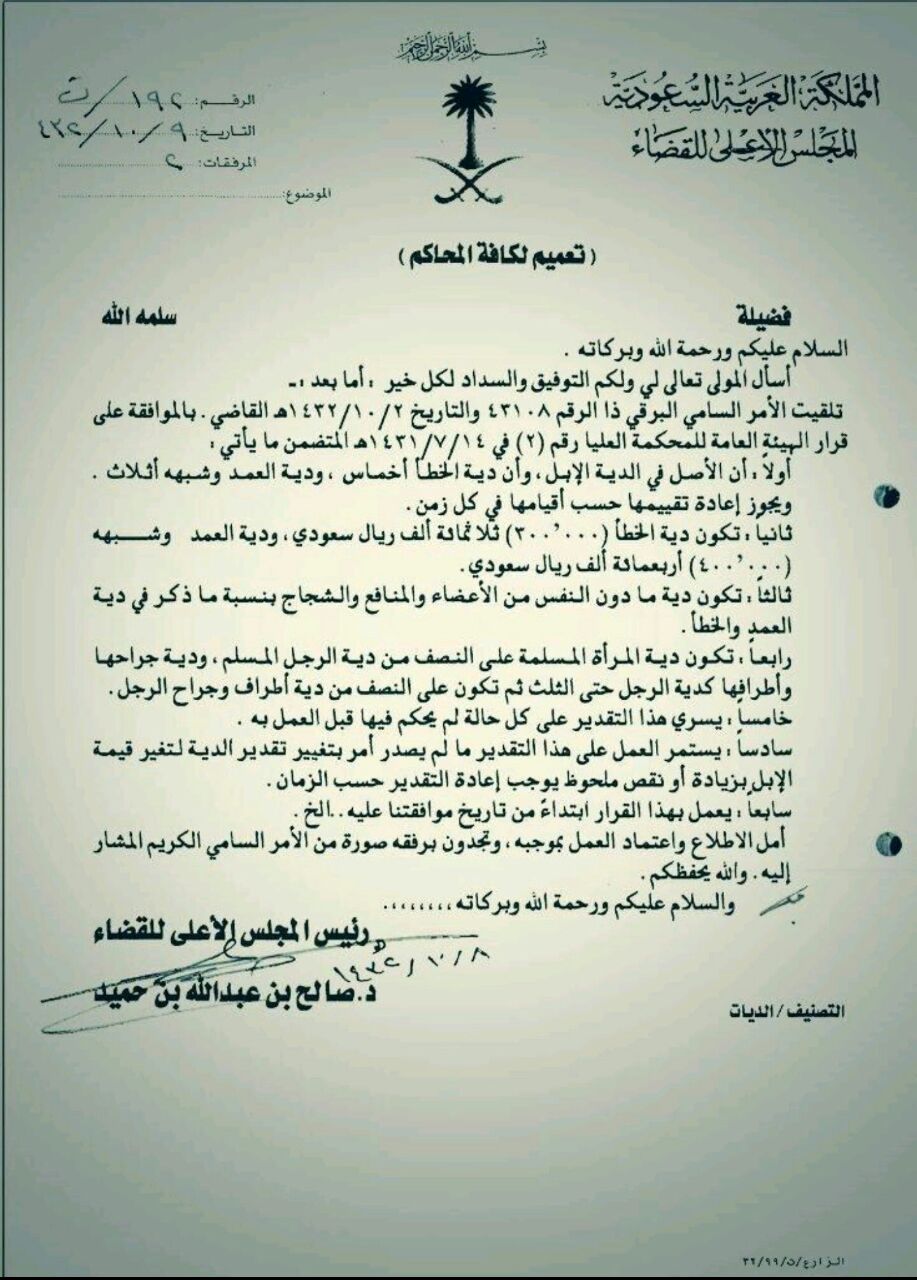 بسم الله الرحمن الرحيم
المملكة العربية السعودية
المجلس الأعلى للقضاء
الرقم: ١٩٢/ت
التاريخ: ٩/١٠/٤٣٢
المرفقات: ٢
الموضوع:
( تعميم لكافة المحاكم )
فضيلة سلمه الله
السلام عليكم ورحمة الله وبركاته .
أسأل المولى تعالى لي ولكم التوفيق والسداد لكل خير ، أما بعد :ـ
تلقيت الأمر السامي البرقي ذا الرقم ٤٣١٠٨ والتاريخ ١٤٣٢/١٠/٢هـ القاضي . بالموافقة على
قرار الهيئة العامة للمحكمة العليا رقم (٢) في ١٤٣١/٧/١٤هـ المتضمن ما يأتي :
أولاً : أن الأصل في الدية الإبل ، وأن دية الخطأ أخماس ، ودية العمد وشبهه أثلاث .
ويجوز إعادة تقييمها حسب أقيامها في كل زمن .
ثانياً : تكون دية الخطأ (٣٠٠٬٠٠٠) ثلاثمائة ألف ريال سعودي ، ودية العمد وشبهه
(٤٠٠٬٠٠٠) أربعمائة ألف ريال سعودي .
ثالثاً : تكون دية ما دون النفس من الأعضاء والمنافع والشجاج بنسبة ما ذكر في دية
العمد والخطأ .
رابعاً : تكون دية المرأة المسلمة على النصف من دية الرجل المسلم ، ودية جراحها
وأطرافها كدية الرجل حتى الثلث ثم تكون على النصف من دية أطراف وجراح الرجل .
خامساً : يسري هذا التقدير على كل حالة لم يحكم فيها قبل العمل به .
سادساً : يستمر العمل على هذا التقدير ما لم يصدر أمر بتغيير تقدير الدية لتغير قيمة
الإبل بزيادة أو نقص ملحوظ يوجب إعادة التقدير حسب الزمان .
سابعاً : يعمل بهذا القرار ابتداءً من تاريخ موافقتنا عليه..الخ .
أمل الاطلاع واعتماد العمل بموجبه ، وتجدون برفقه صورة من الأمر السامي الكريم المشار
إليه . والله يحفظكم .
والسلام عليكم ورحمة الله وبركاته ،،،،،،،،
رئيس المجلس الأعلى للقضاء
١٤٣٢/١٠/٨
د.صالح بن عبدالله بن حميد
التصنيف / الديات